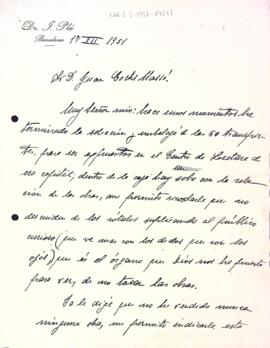 Dr. J. Plá
Barcelona
17 XII 1951
S. D. Juan
Muy Señor mío: hace unos momentos he
terminado la selección y embalaje de las 50
para ser en el Centro de Lectura de
esa capital, dentro de la caja hay sobre con la rela-
ción de las obras, me permito recordarle que no
de los rótulos suplicando al público
curioso (que ve mas con los dedos que con los
ojos) que es el órgano que Dios nos ha puesto
para ver, de no tocar las obras.
Ya le dije que no he vendido nunca
ninguna obra, me permito indicarle esto